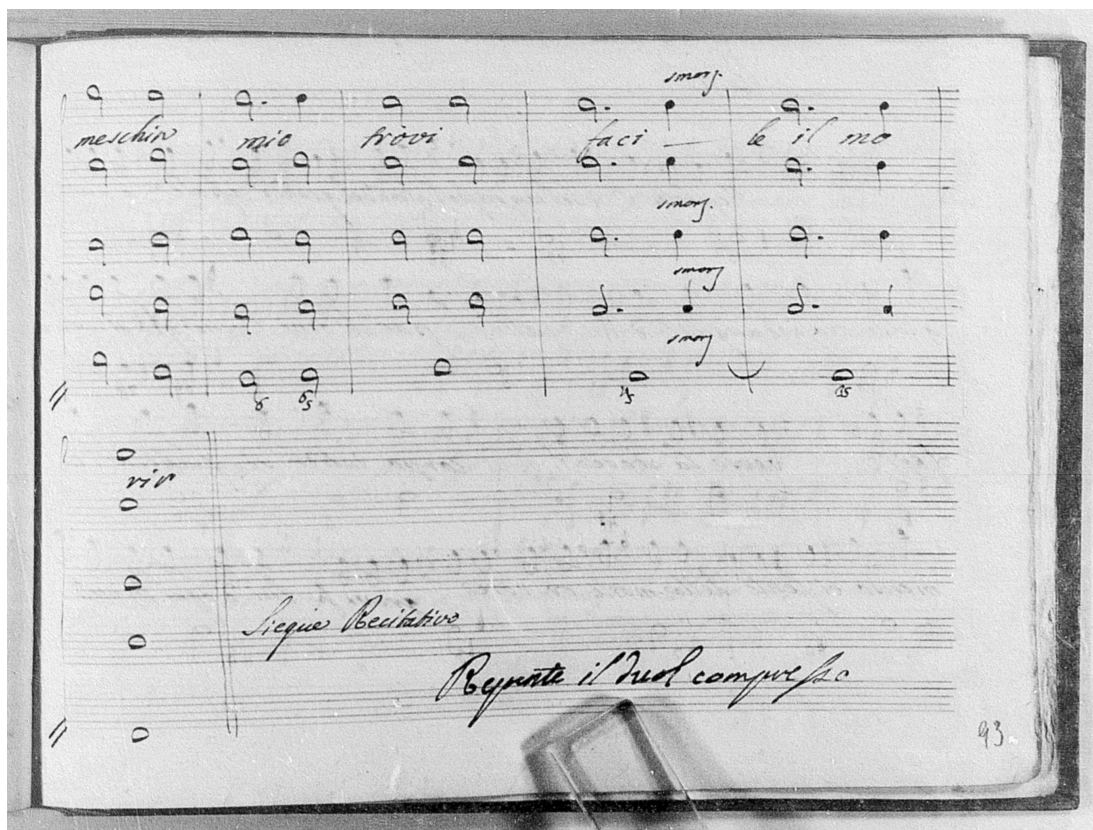 smorz.
meschin mio trovi faci — le il mo
smorz.
smorz.
smorz.
6 65
rir
Siegue Recitativo
Repente il duol compresso
93.